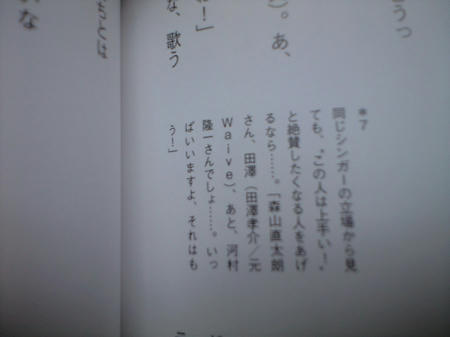 うっ
)。あ、
ね!」
な、歌う
ちとは
な
*7
同じシンガーの立場から見
ても、“この人は上手い!”
と絶賛したくなる人をあげ
るなら……。「森山直太朗
さん、田澤(田澤孝介/元
Waive)、あと、河村
隆一さんでしょ……。いっ
ぱいいますよ、それはも
う!」